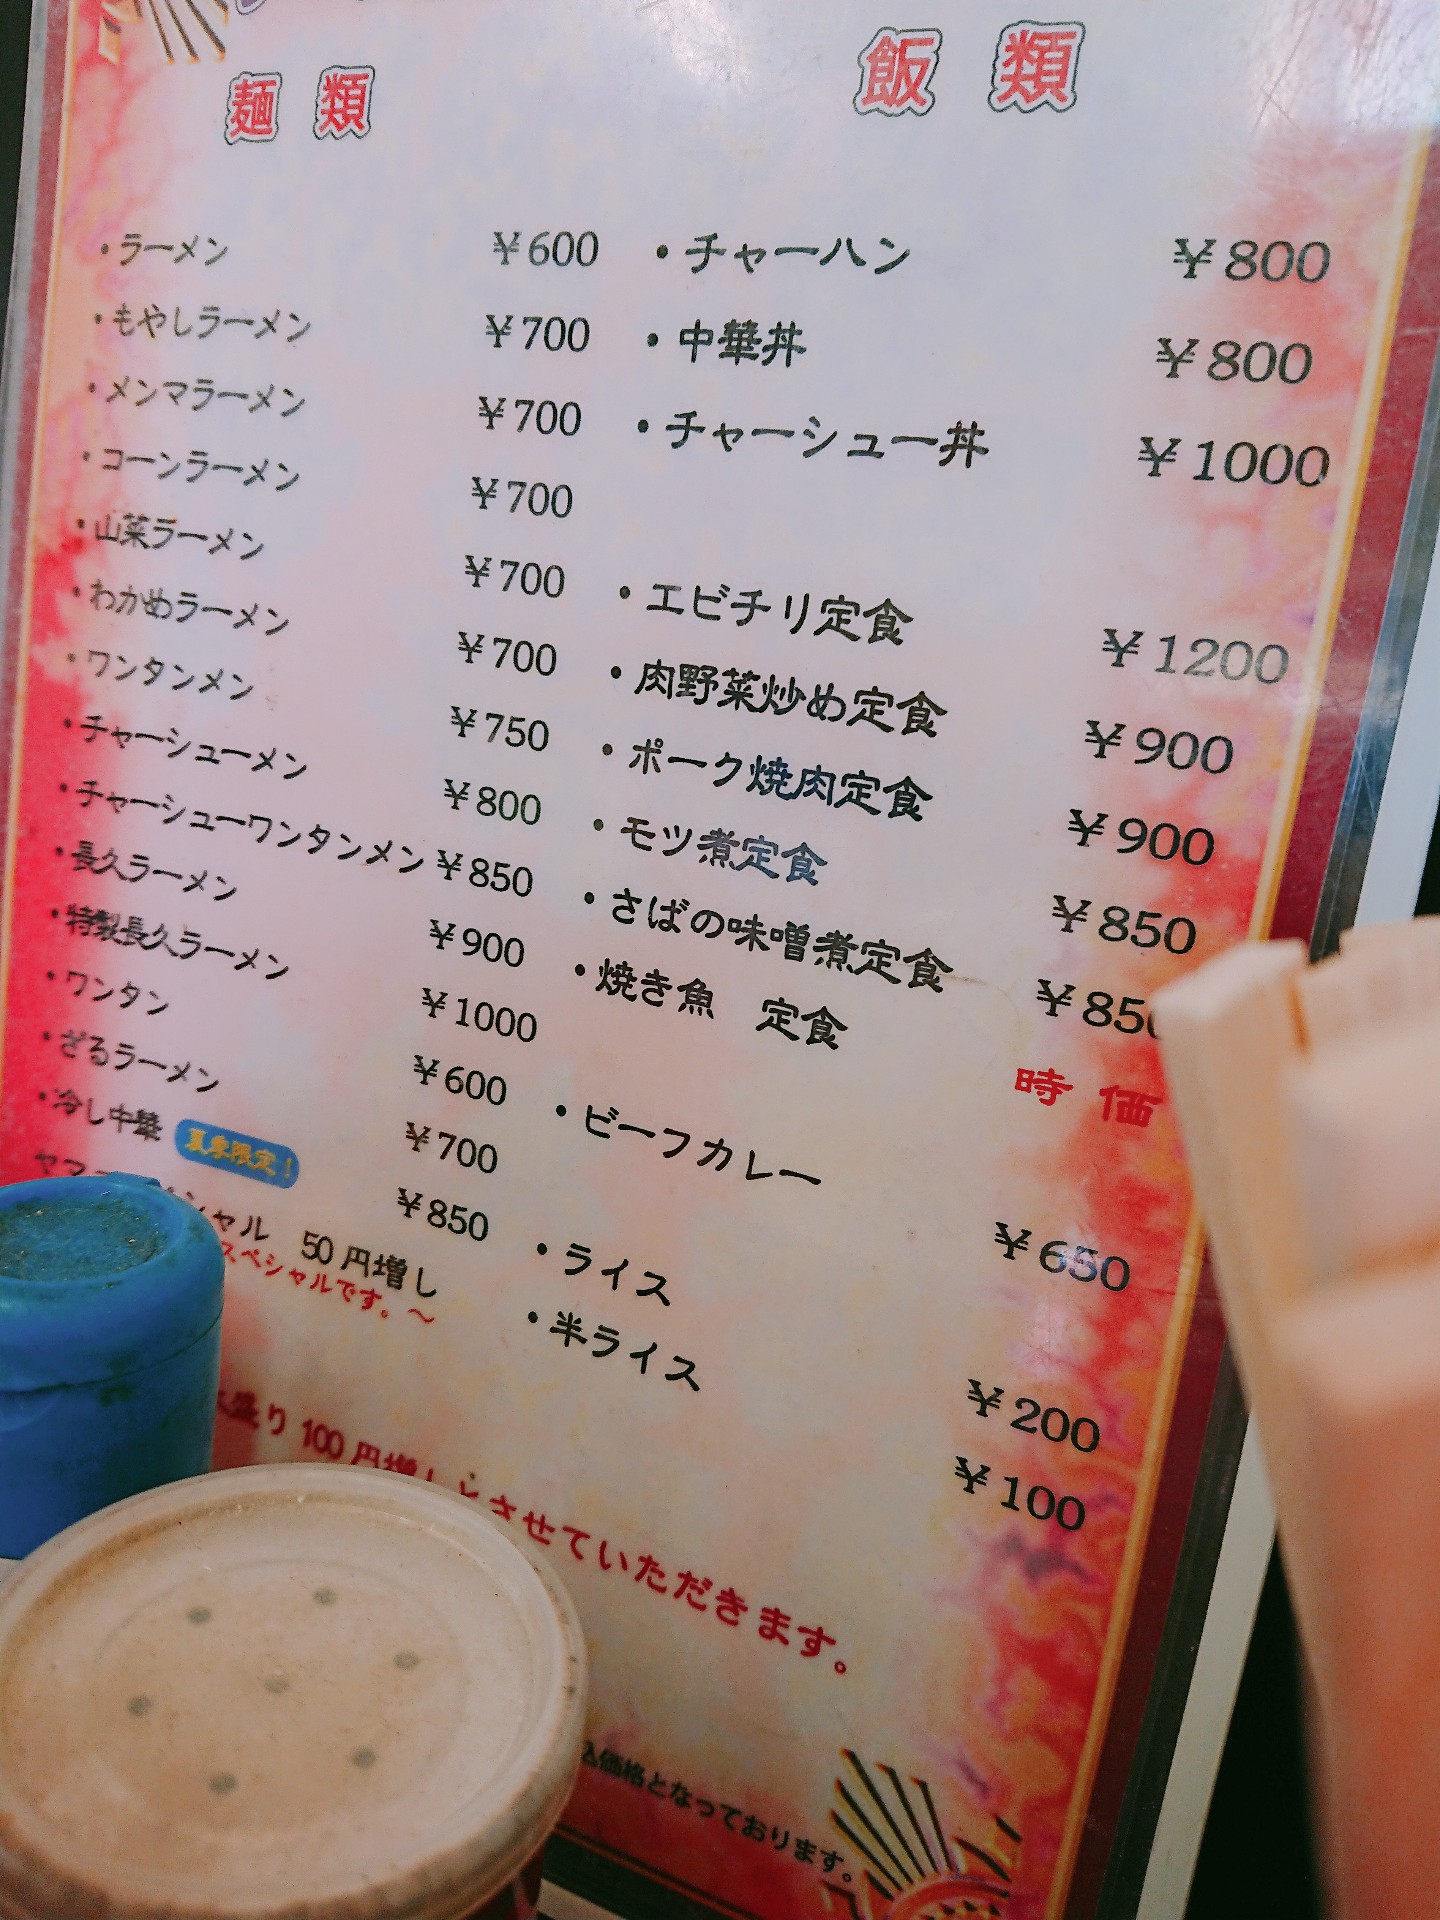 麺類
・ラーメン ¥600
・もやしラーメン ¥700
・メンマラーメン ¥700
・コーンラーメン ¥700
・山菜ラーメン ¥700
・わかめラーメン ¥700
・ワンタンメン ¥750
・チャーシューメン ¥800
・チャーシューワンタンメン ¥850
・長久ラーメン ¥900
・特製長久ラーメン ¥1000
・ワンタン ¥600
・ざるラーメン ¥700
・冷し中華 夏季限定! ¥850
シャル 50円増し
スペシャルです。〜
飯類
・チャーハン ¥800
・中華丼 ¥800
・チャーシュー丼 ¥1000
・エビチリ定食 ¥1200
・肉野菜炒め定食 ¥900
・ポーク焼肉定食 ¥900
・モツ煮定食 ¥850
・さばの味噌煮定食 ¥850
・焼き魚 定食 時価
・ビーフカレー ¥650
・ライス ¥200
・半ライス ¥100
盛り100円増しとさせていただきます。
込価格となっております。